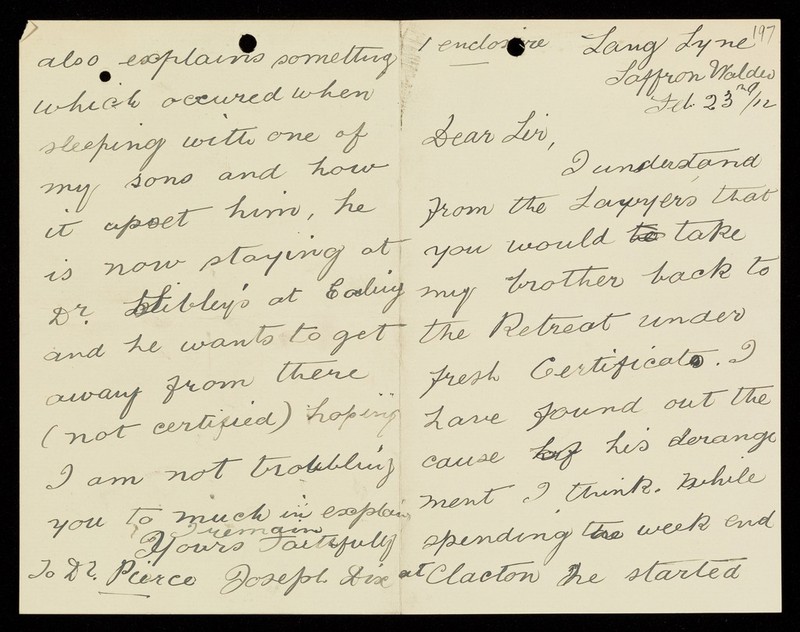 197
1 enclosure Lang Lyne
Saffron Walden
Feb 23rd/12
Dear Sir,
I understand
from the Lawyers that
you would take
my brother back to
the Retreat under
fresh Certificate. I
have found out the
cause of his derange
ment I think. While
spending the week end
at Clacton he started
also explains something
which occured when
sleeping with one of
my sons and how
it apset him, he
is now staying at
Dr. at Ealing
and he wants to get
away from there
(not certified) hoping
I am not troubling
you to much in explain
I remain
Yours Faithfully
To Dr. Pierce Joseph Dix